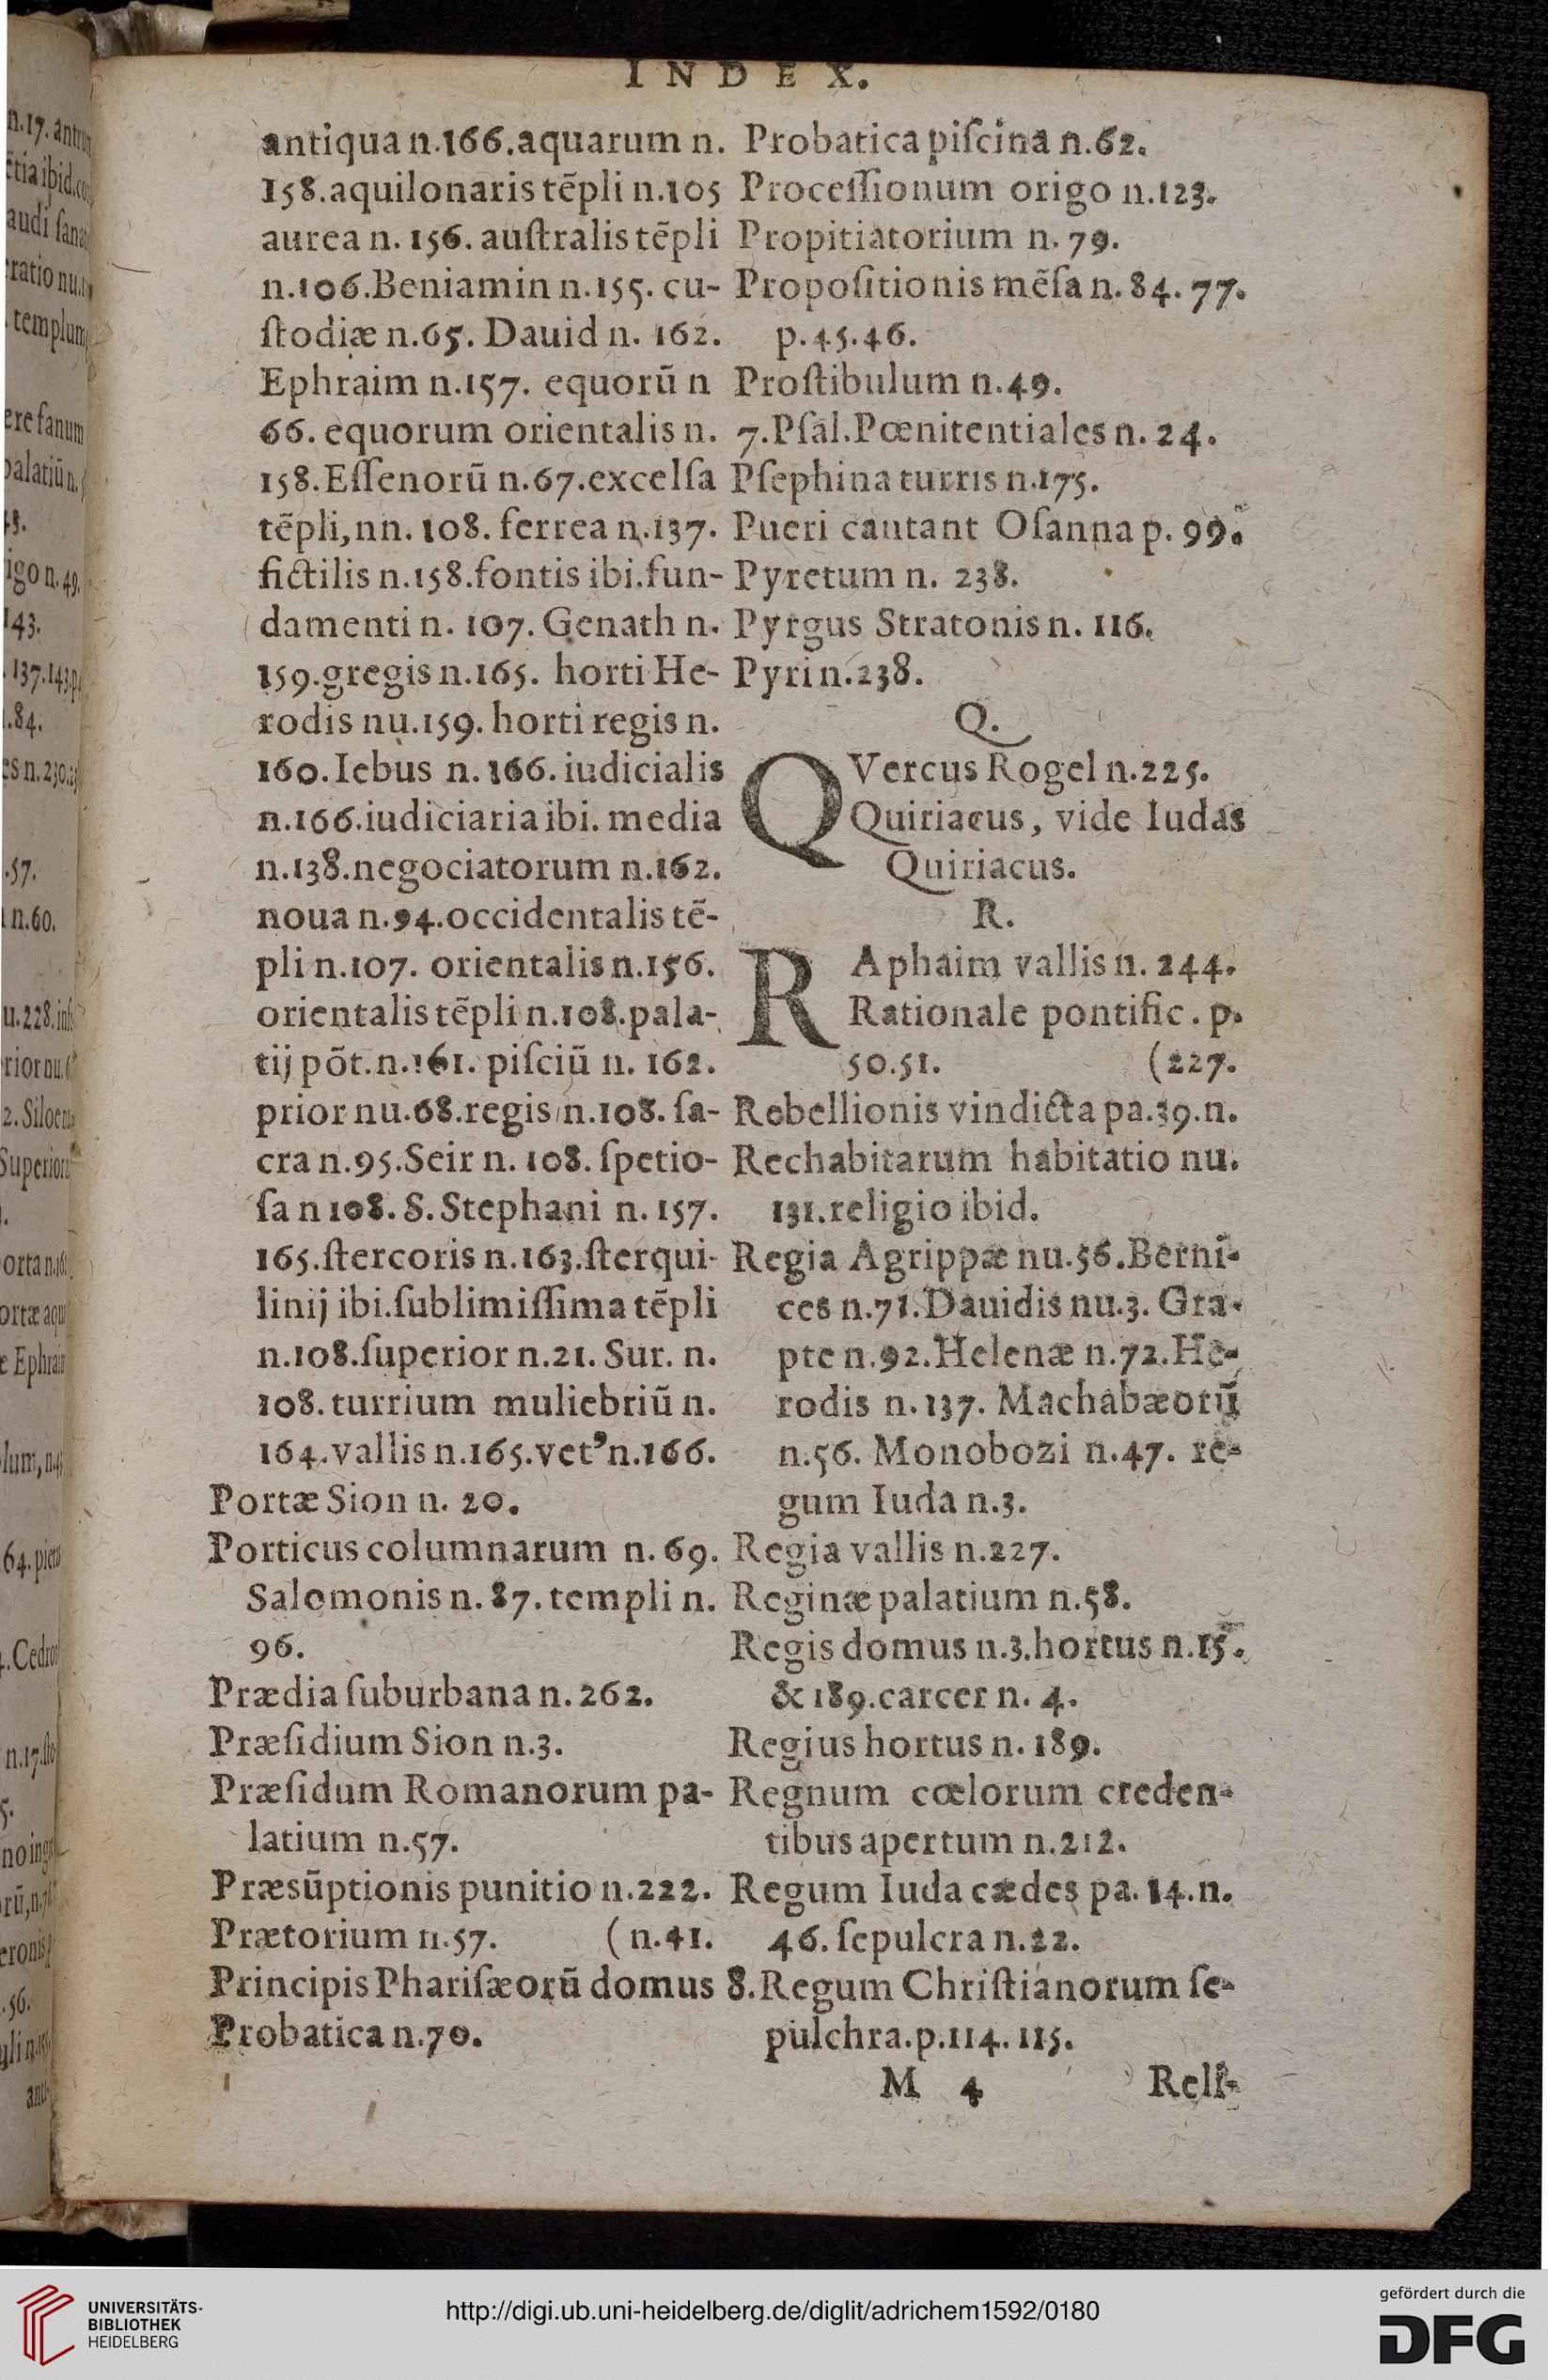 INDEX.
antiqua n.166.aquarum n.
158.aquilonaris tẽpli n.105
aurea n. 156. auſtralis tẽpli
n.106.Beniamin n.155. cu-
ſtodiæ n.65. Dauid n. 162.
Ephraim n.157. equorũ n
66. equorum orientalis n.
158.Eſſenorũ n.67.excelſa
tẽpli,nn. 108. ferrea n.137.
fictilis n.158.fontis ibi.fun-
damenti n. 107. Genath n.
159.gregis n.165. horti He-
rodis nu.159. horti regis n.
160.Iebus n.166. iudicialis
n.166.iudiciaria ibi. media
n.138.negociatorum n.162.
noua n.94.occidentalis tẽ-
pli n.107. orientalis n.156.
orientalis tẽpli n.108.pala-
tij põt.n.161. piſciũ n. 162.
prior nu.68.regis n.108. ſa-
cra n.95.Seir n. 108. ſpetio-
ſa n 108. S. Stephani n. 157.
165.ſtercoris n.163.ſterqui-
linij ibi.ſublimiſſima tẽpli
n.108.ſuperior n.21. Sur. n.
108. turrium muliebriũ n.
164.vallis n.165.vet⁹n.166.
Portæ Sion n. 20.
Porticus columnarum n. 69.
Salomonis n. 87. templi n.
96.
Prædia ſuburbana n. 262.
Præſidium Sion n.3.
Præſidum Romanorum pa-
latium n.57.
Præsũptionis punitio n.222.
Prætorium n.57. ( n.41.
Principis Phariſæorũ domus
Probatica n.70.
Probatica piſcina n.62.
Proceſſionum origo n.123.
Propitiatorium n. 79.
Propoſitionis mẽſa n. 84. 77.
p.45.46.
Proſtibulum n.49.
7.Pſal.Pœnitentiales n. 24.
Pſephina turris n.175.
Pueri cantant Oſanna p. 99.
Pyretum n. 238.
Pyrgus Stratonis n. 116.
Pyri n.238.
Q.
QVercus Rogel n.225.
Quiriacus, vide Iudas
Quiriacus.
R.
RAphaim vallis n. 244.
Rationale pontific. p.
50.51. (227.
Rebellionis vindicta pa.39.n.
Rechabitarum habitatio nu.
131.religio ibid.
Regia Agrippæ nu.56.Berni-
ces n.71.Dauidis nu.3. Gra-
pte n.92.Helenæ n.72.He-
rodis n.137. Machabæorũ
n.56. Monobozi n.47. re-
gum Iuda n.3.
Regia vallis n.227.
Reginæ palatium n.58.
Regis domus n.3.hortus n.15.
& 189.carcer n. 4.
Regius hortus n. 189.
Regnum cœlorum creden-
tibus apertum n.212.
Regum Iuda cædes pa. 14.n.
46. ſepulcra n.22.
8.Regum Chriſtianorum ſe-
pulchra.p.114. 115.
M 4 Reli-
UNIVERSITÄTS-
BIBLIOTHEK
HEIDELBERG
http://digi.ub.uni-heidelberg.de/diglit/adrichem1592/0180
gefördert durch die
DFG